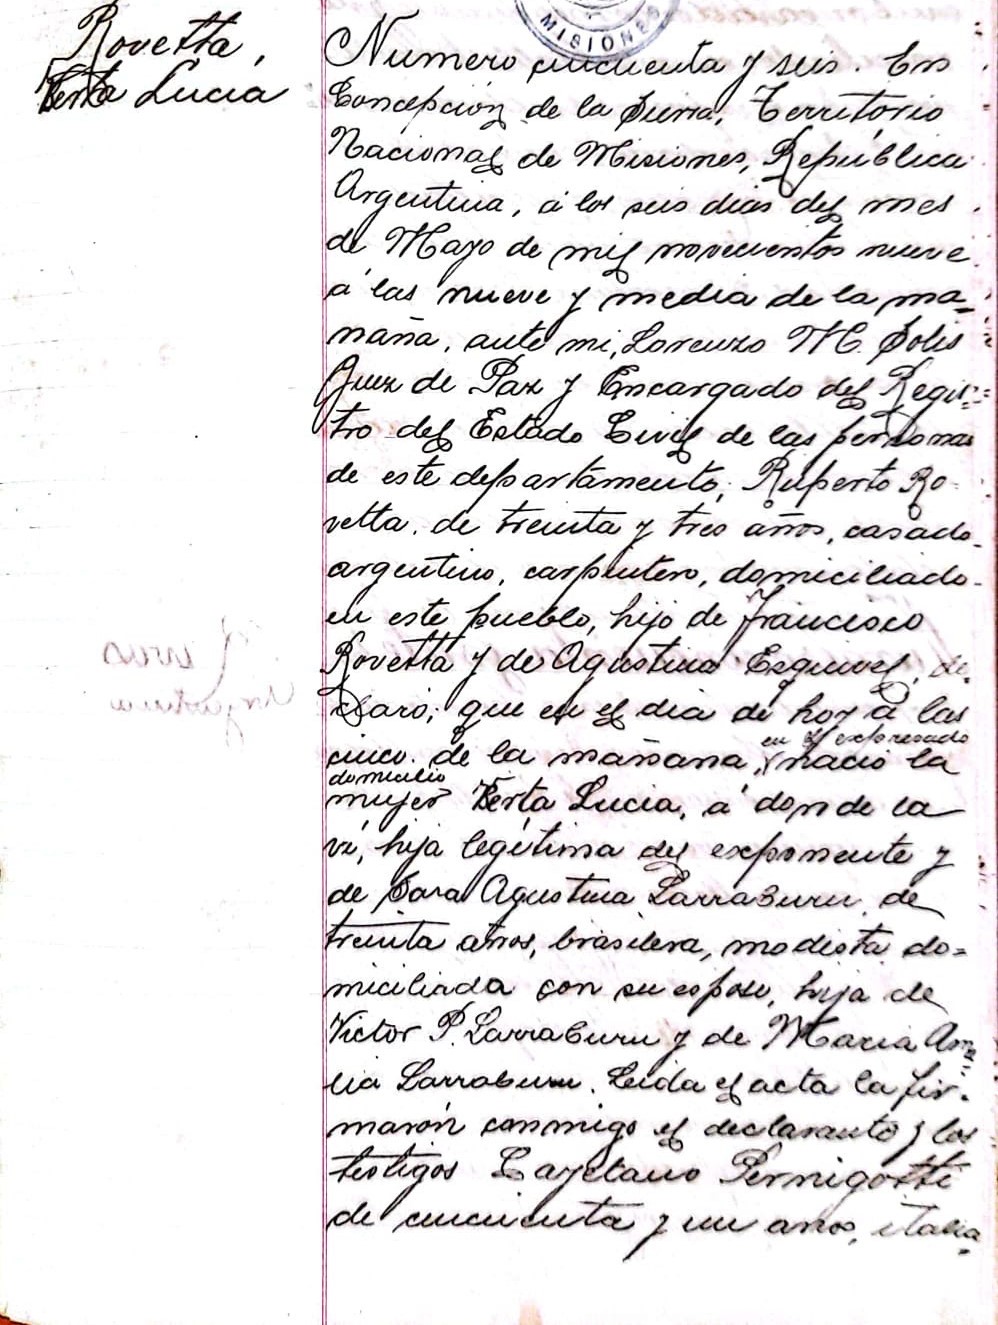 MISIONES
Rovetta,
Berta Lucia
Numero cincuenta y seis. En
Concepcion de la Sierra, Territorio
Nacional de Misiones, República
Argentina, á los seis dias del mes
de Mayo de mil novecientos nueve
á las nueve y media de la ma=
ñana, ante mi, Lorenzo M. Solis
Juez de Paz y Encargado del Regis=
tro del Estado Civil de las personas
de este departamento, Ruperto Ro-
vetta, de treinta y tres años, casado
argentino, carpintero, domiciliado
en este pueblo, hijo de Francisco
Rovetta y de Agustina Esquivel, de
claró; que en el dia de hoy á las
en el expresado
cinco de la mañana, nació la
domicilio
mujer Berta Lucia, á donde la
ví, hija legitima del exponente y
de Sara Agustina Larraburu, de
treinta años, brasilera, modista do=
miciliada con su esposo, hija de
Victor P. Larraburu y de Maria Am=
lia Larraburu. Leida el acta la fir=
marón conmigo el declarante y los
testigos Cayetano Pernigotti
de cincuenta y un anos, italia=